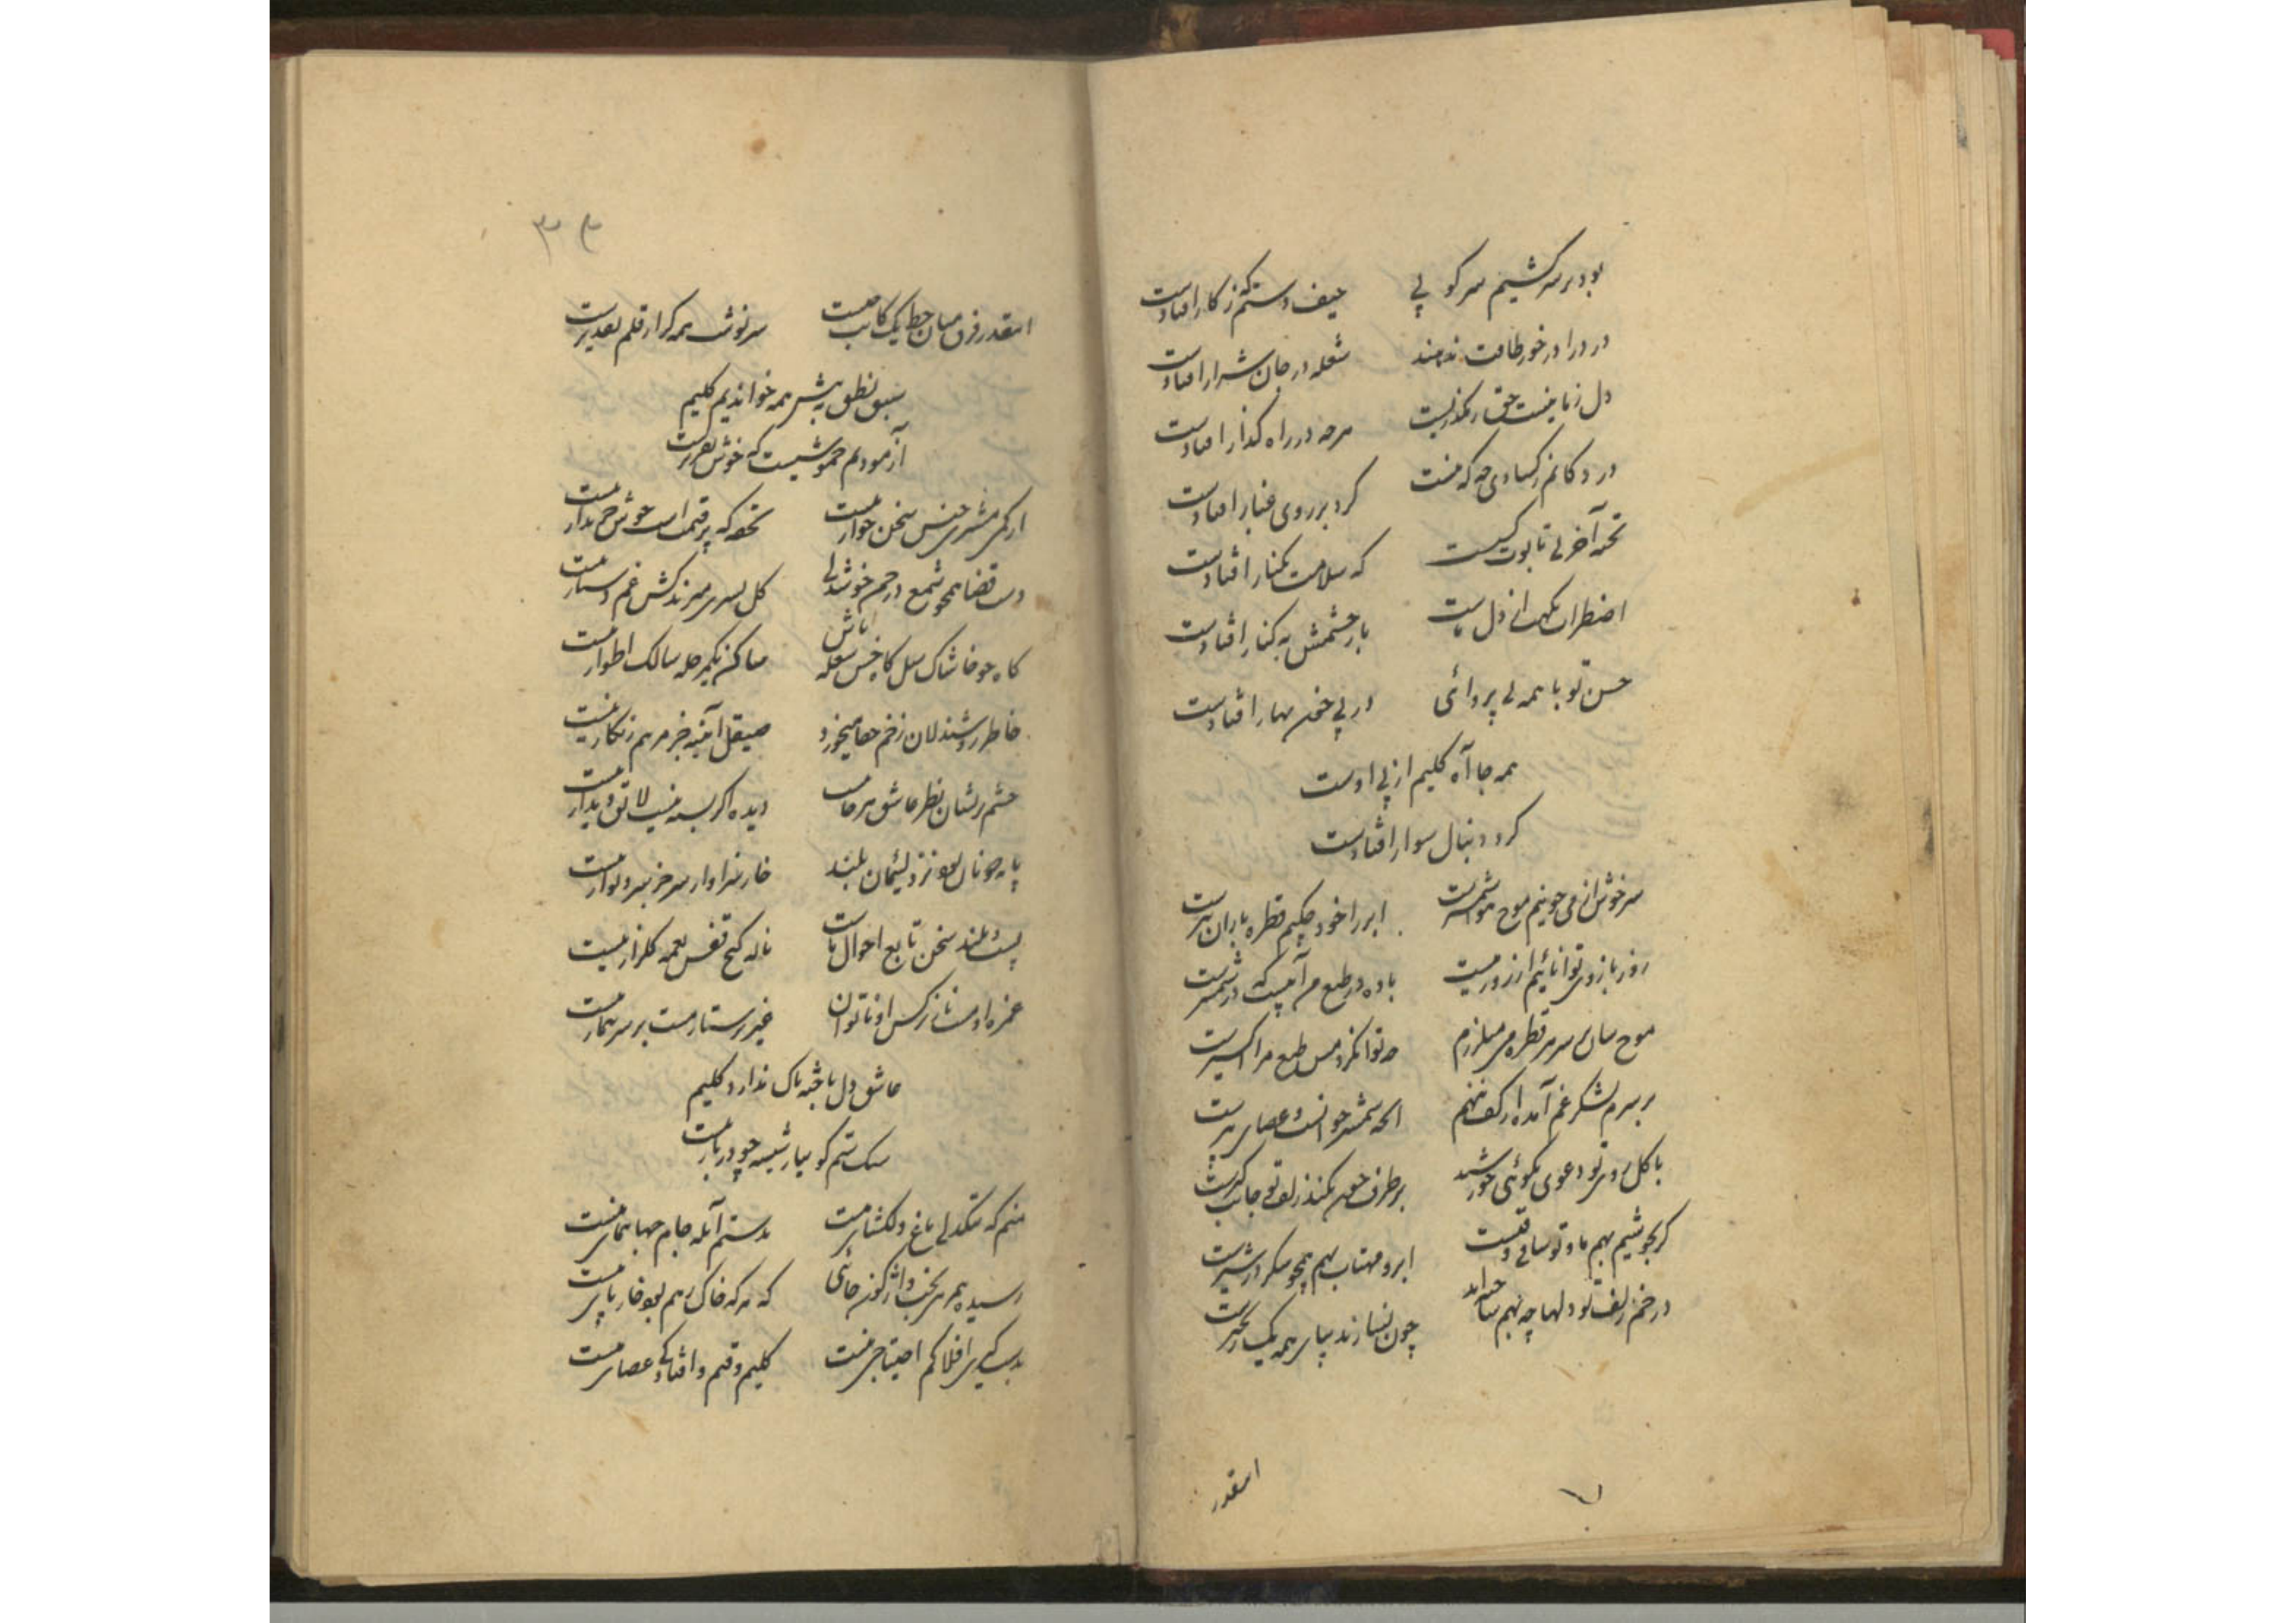 بود بر سر کشیم سر کو پی حیف دستم که ز کار افتادست
درد را در خور طاقت ندهند شعله در جان شرار افتادست
دل ز ما نیست حق رهگذریست هر چه در راه گذار افتادست
در دکانم ز کسادی چه که نیست گرد بر روی غبار افتادست
تخته آخر بی تابوت کیست که سلامت بکنار افتادست
اضطراب نگهت از دل ماست باز چشمش به کنار افتادست
حسن تو با همه بی پروائی در پی خون بهار افتادست
همه جا آه کلیم از پی اوست
گرد دنبال سوار افتادست
سرخوش از می چو نیم موج هوا شمشیرست ابر را خود چکنم قطره باران تیرست
روز بازوی توانائیم از زور میست باده در طبع من آبیست که در شمشیرست
موج سان بر سر هر قطره می میلرزم چه توان کرد مس طبع مرا اکسیرست
بر سرم لشکر غم آمده از کف ننهم آنچه شمشیر جوانست و عصای پیرست
با گل روی تو دعوی نکوئی خورشید بر طرف چون نکند زلف تو جانب گیرست
گر بجوشیم بهم ما و تو ساقی وقتست ابر و مهتاب بهم همچو شکر در شیرست
در خم زلف تو دلها چه بهم ساخته‌اند چون نسازند بپای همه یک زنجیرست
اینقدر
اینقدر فرق میان خط یک کاتب چیست سرنوشت همه گر از قلم تقدیرست
سبق نطق به پیش همه خواندیم کلیم
آزمودیم خموشیست که خوش تقریرست
۳۴
از کمی مشتری جنس سخن خوار نیست تحفه که پر قیمت است خوش خریدار نیست
دست قضا همچو شمع در چمن خوشدلی گل بسری میزند کش غم دستار نیست
گاه چو خاشاک سیل گاه خس شعله باش ساکن یک مرحله سالک اطوار نیست
خاطر روشندلان زخم جفا میخورد صیقل آئینه جز مرهم زنگار نیست
چشم پریشان نظر عاشق هر جاست دیده اگر بسته نیست لایق دیدار نیست
پایه چو نان بود نزد لئیمان بلند خار سزاوار سر جز سر دیوار نیست
پست و بلند سخن تابع احوال ماست ناله کنج قفس نغمه گلزار نیست
غمزه او مست ناز نرگس او ناتوان غیر پرستار مست بر سر بیمار نیست
عاشق دل باخته باک ندارد کلیم
سنگ ستم گو ببار شیشه چو در بار نیست
منم که تنگدلی باغ دلگشای منست بدستم آبله جام جهان نمای منست
رسیده‌ام بر بخت واژگون جائی که هر که خاک رهم بود خار پای منست
بدستگیری افلاکم احتیاجی نیست کلیم وقتم و افتادگی عصای منست